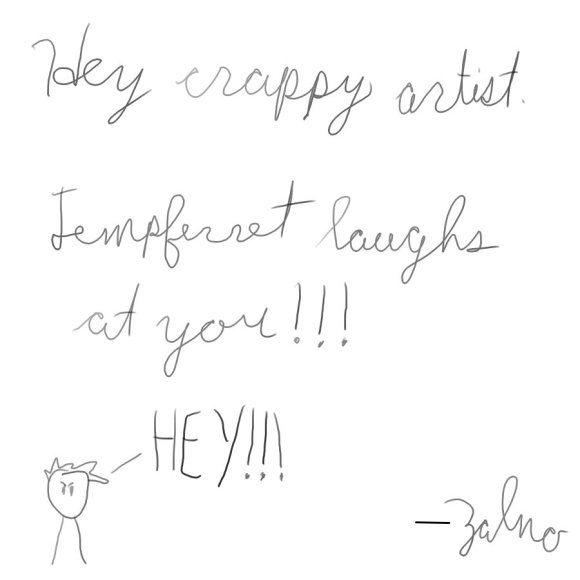 Hey crappy artist.
Tempferret laughs
at you!!!
HEY!!!
—Zalno